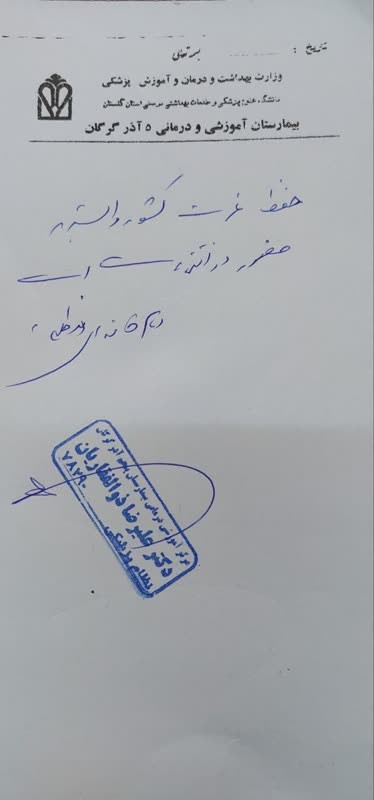 تاریخ :
بسمه تعالی
وزارت بهداشت و درمان و آموزش پزشکی
دانشگاه علوم پزشکی و خدمات بهداشتی درمانی استان گلستان
بیمارستان آموزشی و درمانی ۵ آذر گرگان
حفظ عزت کشور وابسته به
حضور در انتخابات است
امام خامنه ای
دکتر علیرضا ذوالفقاریان
نظام پزشکی